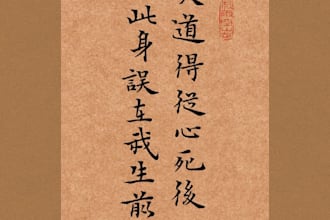 道得從心死後
此身誤在我生前